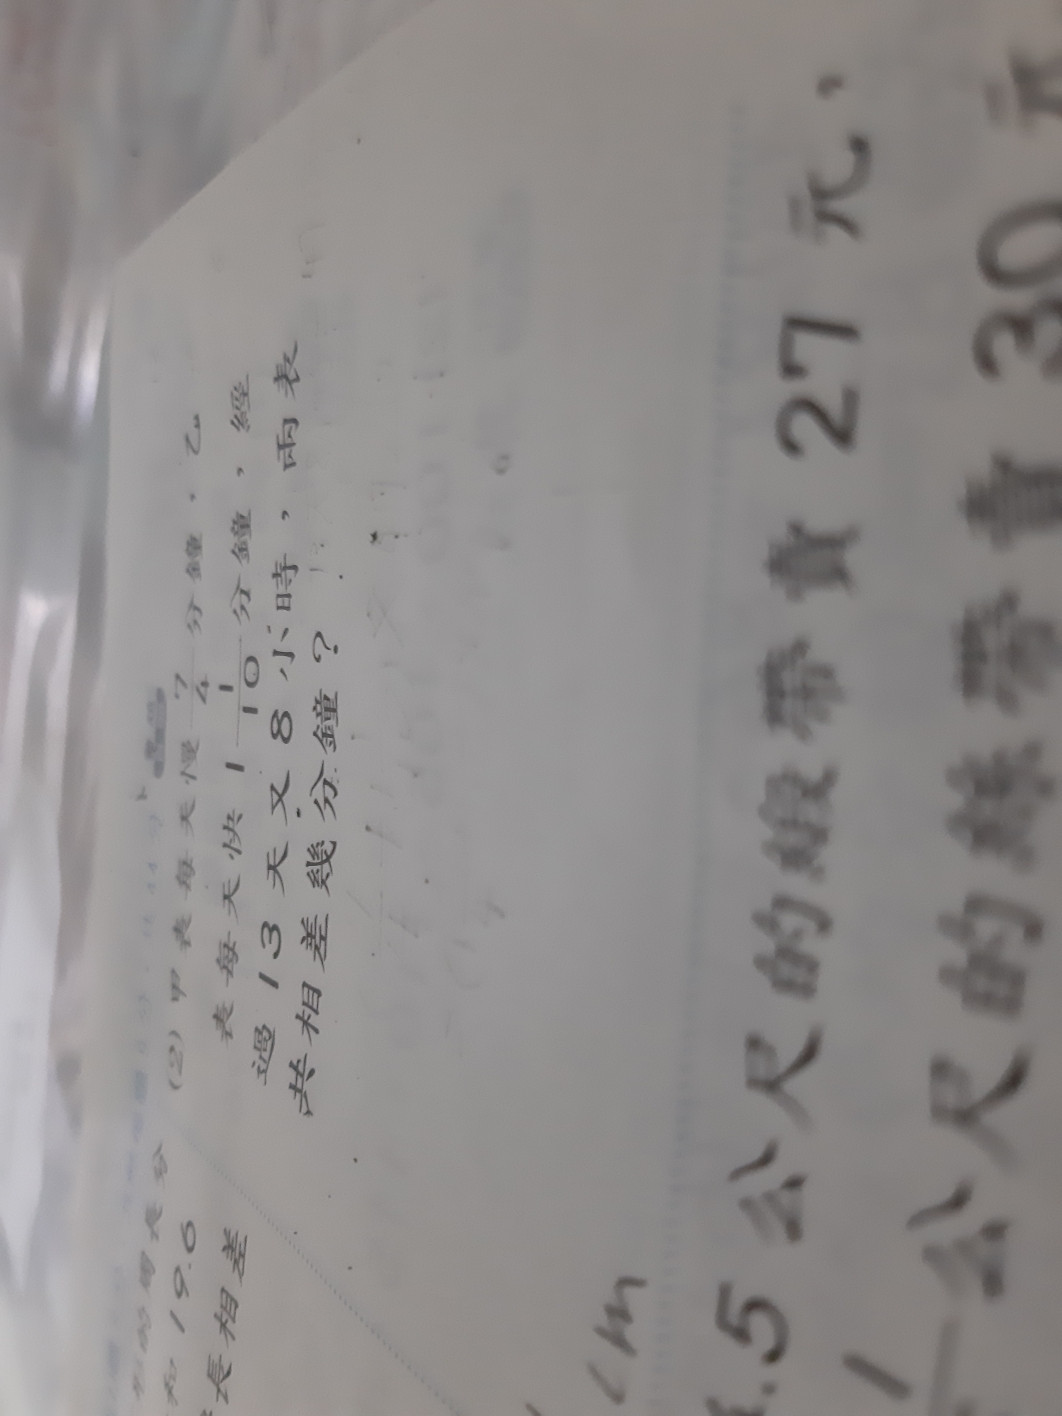 (2) 甲表每天慢 7/4 分鐘，乙
表每天快 1 1/10 分鐘，經
過 13 天又 8 小時，兩表
共相差幾分鐘？
的周長分
和 19.6
長相差
cm
.5 公尺的緞帶賣 27 元，
1 公尺的緞帶賣 30 元